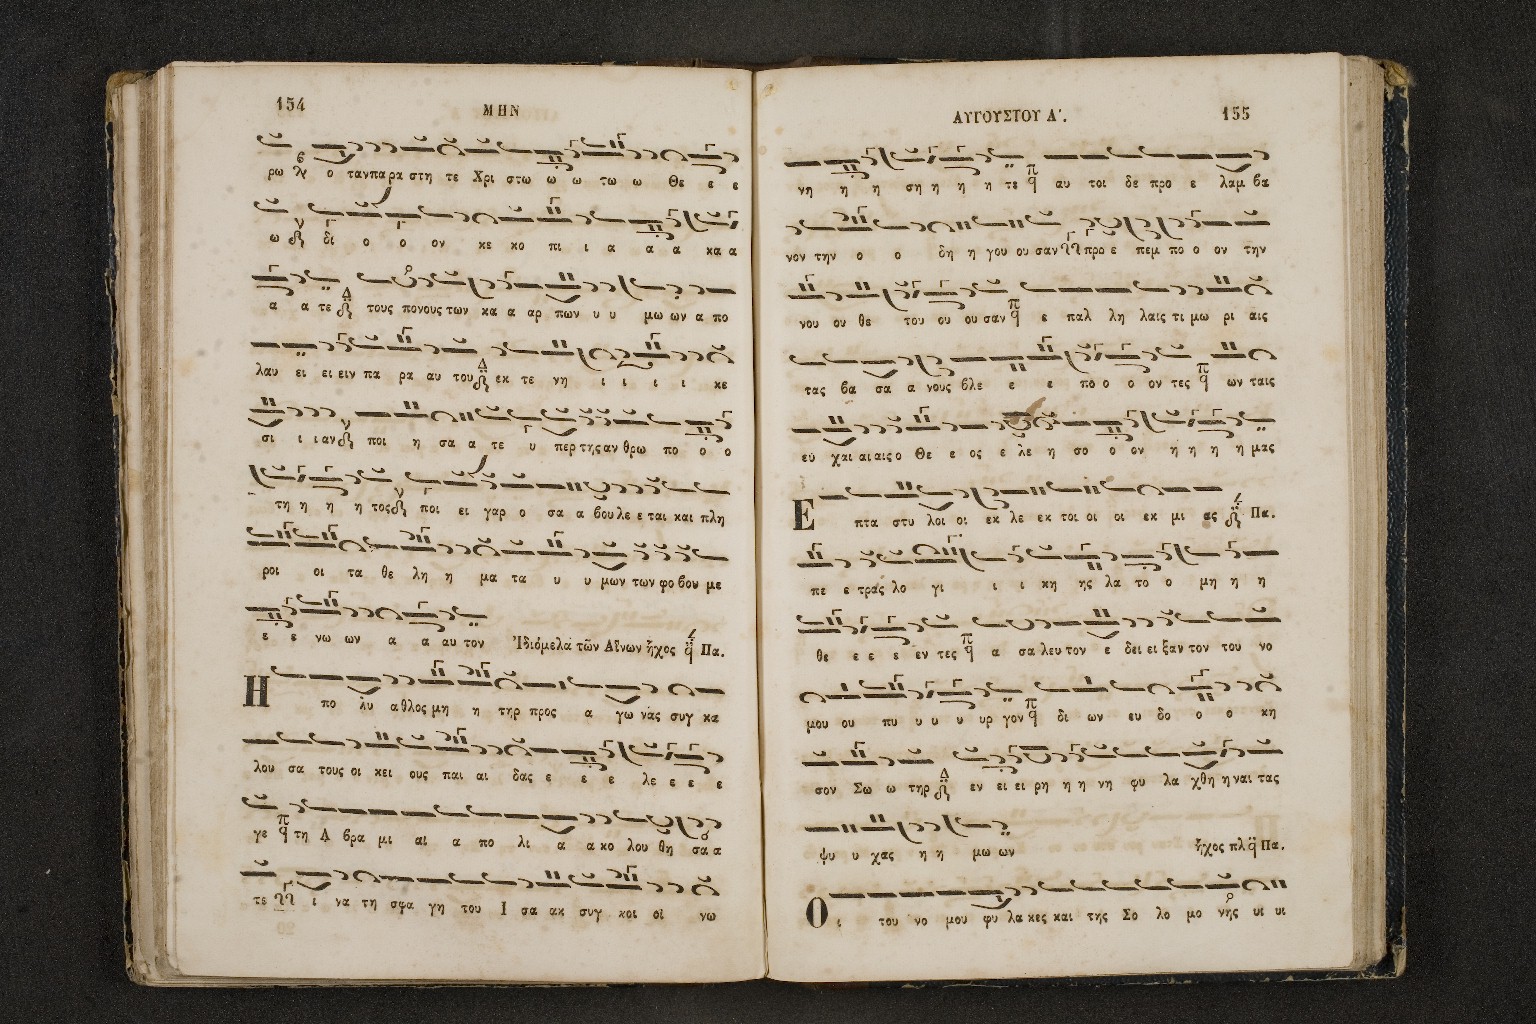 154
ΜΗΝ
ρω ο ταν πα ρα στη τε Χρι στω ω ω τω ω Θε ε ε
ω δι ο ο ον κε κο πι ι α α α κα α
α α τε τους πονους των κα α αρ πων υ υ μω ων α πο
λαυ ει ει ειν πα ρα αυ του εκ τε νη ι ι ι ι κε
σι ι ι αν ποι η σα α τε υ περ της αν θρω πο ο ο
τη η η η τος ποι ει γαρ ο σα α βου λε ε ται και πλη
ροι οι τα θε λη η μα τα υ υ μων των φο βου με
ε ε νω ων α α αυ τον Ἰδιόμελα τῶν Αἴνων ἦχος Πα.
Η πο λυ α θλος μη η τηρ προς α γω νας συγ κα
λου σα τους οι κει ους παι αι δας ε ε ε λε ε ε ε
γε τη Α βρα μι αι α πο λι α α κο λου θη σα α
τε ι να τη σφα γη του Ι σα ακ συγ κοι οι νω
ΑΥΓΟΥΣΤΟΥ Α'.
155
νη η η ση η η η τε αυ τοι δε προ ε λαμ βα
νον την ο ο δη η γου ου σαν προ ε πεμ πο ο ον την
νου ου θε του ου ου σαν ε παλ λη λαις τι μω ρι αις
τας βα σα α νους βλε ε ε πο ο ο ον τες ων ταις
ευ χαι αι αις ο Θε ε ος ε λε η σο ο ον η η η η μας
Ε πτα στυ λοι οι εκ λε εκ τοι οι οι εκ μι ας Πα.
πε ε τρας λο γι ι ι κη ης λα το ο μη η η
θε ε ε ε εν τες α σα λευ τον ε δει ει ξαν τον του νο
μου ου πυ υ υ υ υρ γον δι ων ευ δο ο ο κη
σον Σω ω τηρ εν ει ει ρη η η νη φυ λα χθη η ναι τας
ψυ υ χας η η μω ων ἦχος πλ Πα.
Ο ι του νο μου φυ λα κες και της Σο λο μο νης υι υι